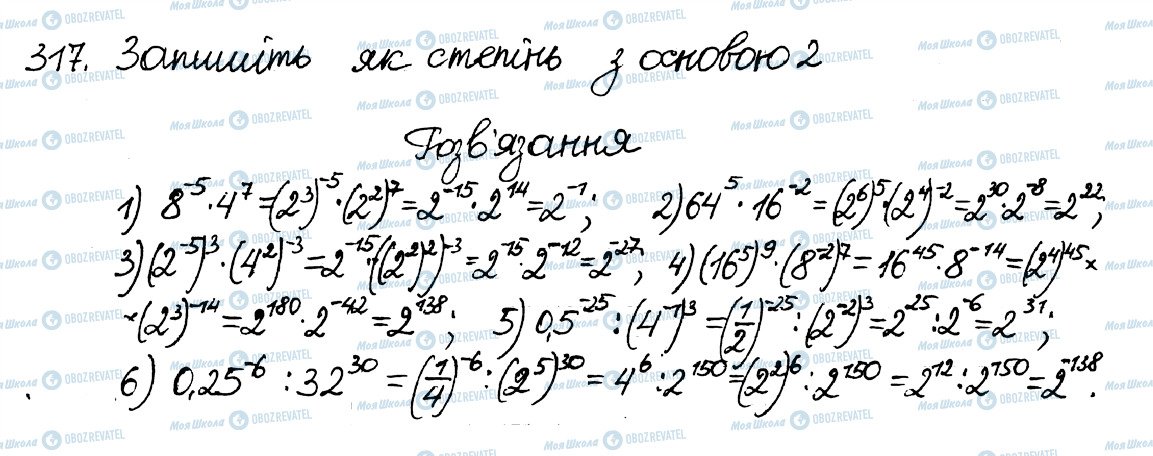 317. Запишіть як степінь з основою 2
Розв'язання
1) 8^-5 · 4^7 = (2^3)^-5 · (2^2)^7 = 2^-15 · 2^14 = 2^-1; 2) 64^5 · 16^-2 = (2^6)^5 · (2^4)^-2 = 2^30 · 2^-8 = 2^22;
3) (2^-5)^3 · (4^2)^-3 = 2^-15 · ((2^2)^2)^-3 = 2^-15 · 2^-12 = 2^-27; 4) (16^5)^9 · (8^-2)^7 = 16^45 · 8^-14 = (2^4)^45 ×
× (2^3)^-14 = 2^180 · 2^-42 = 2^138; 5) 0,5^-25 : (4^-1)^3 = (1/2)^-25 : (2^-2)^3 = 2^25 : 2^-6 = 2^31;
6) 0,25^-6 : 32^30 = (1/4)^-6 : (2^5)^30 = 4^6 : 2^150 = (2^2)^6 : 2^150 = 2^12 : 2^150 = 2^-138.